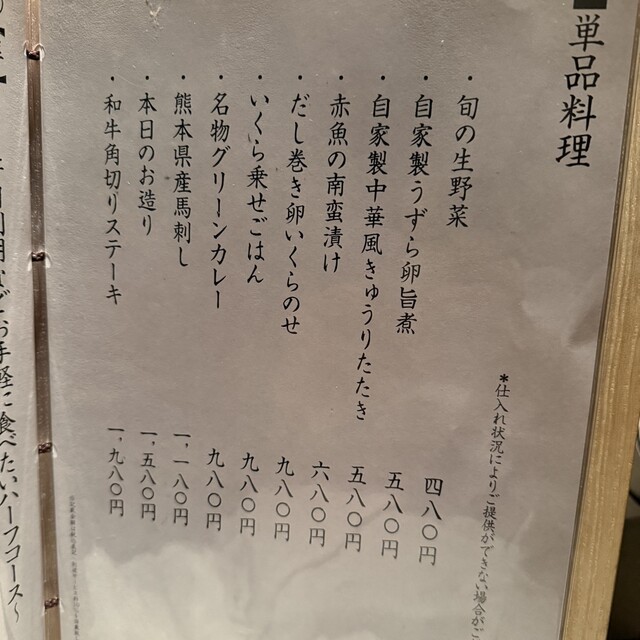 単品料理
*仕入れ状況によりご提供ができない場合がご
・旬の生野菜 四八〇円
・自家製うずら卵旨煮 五八〇円
・自家製中華風きゅうりたたき 五八〇円
・赤魚の南蛮漬け 六八〇円
・だし巻き卵いくらのせ 九八〇円
・いくら乗せごはん 九八〇円
・名物グリーンカレー 九八〇円
・熊本県産馬刺し 一、一八〇円
・本日のお造り 一、五八〇円
・和牛角切りステーキ 一、九八〇円
お手軽に食べたいハーフコース〜